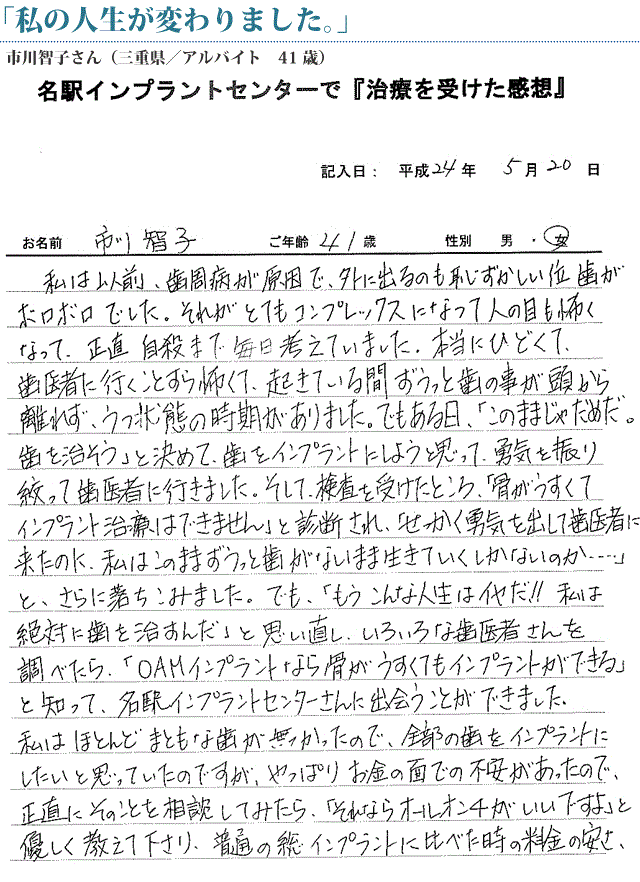 「私の人生が変わりました。」
市川智子さん（三重県／アルバイト　41歳）
名駅インプラントセンターで『治療を受けた感想』
記入日： 平成24年 5月20日
お名前 市川智子 ご年齢 41歳 性別 男・女
私は以前、歯周病が原因で、外に出るのも恥ずかしい位歯が
ボロボロでした。それがとてもコンプレックスになって人の目も怖く
なって、正直自殺まで毎日考えていました。本当にひどくて、
歯医者に行くことすら怖くて、起きている間ずうっと歯の事が頭から
離れず、うつ状態の時期がありました。でもある日、「このままじゃだめだ。
歯を治そう」と決めて、歯をインプラントにしようと思って、勇気を振り
絞って歯医者に行きました。そして、検査を受けたところ、「骨がうすくて
インプラント治療はできません」と診断され、「せっかく勇気を出して歯医者に
来たのに、私はこのままずうっと歯がないまま生きていくしかないのか……」
と、さらに落ちこみました。でも、「もうこんな人生はイヤだ!! 私は
絶対に歯を治すんだ」と思い直し、いろいろな歯医者さんを
調べたら、「OAMインプラントなら骨がうすくてもインプラントができる」
と知って、名駅インプラントセンターさんに出会うことができました。
私はほとんどまともな歯が無かったので、全部の歯をインプラントに
したいと思っていたのですが、やっぱりお金の面での不安があったので、
正直にそのことを相談してみたら、「それならオールオン4がいいですよ」と
優しく教えて下さり、普通の総インプラントに比べた時の料金の安さ、